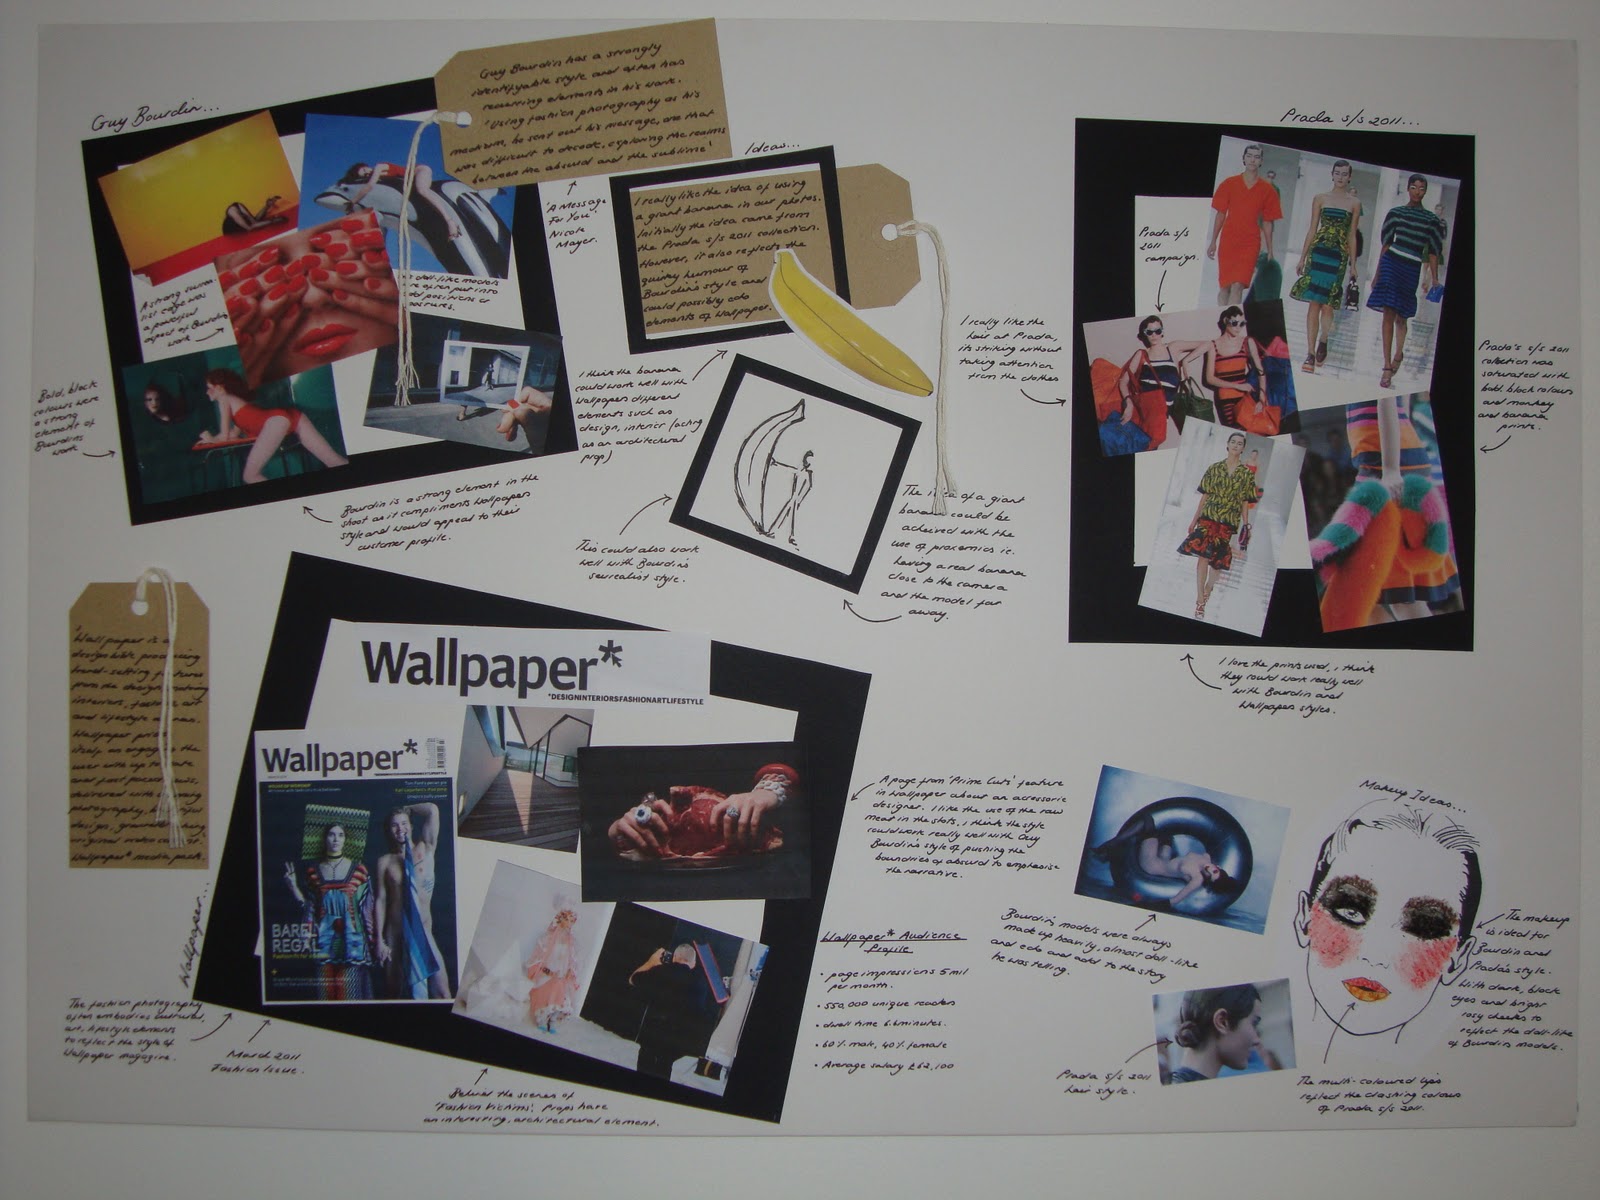 Guy Bourdin...
Guy Bourdin has a strongly
identifyable style and often has
recurring elements in his work.
'Using fashion photography as his
medium, he sent out his message, one that
was difficult to decode, exploring the realms
between the absurd and the sublime'
'A Message
For You'
Nicole
Mayer.
A strong surrea-
list cage was
a powerful
aspect of Bourdin
work
doll-like models
were often put into
odd positions or
postures.
Bold, block
colours were
a strong
element of
Bourdins
work
Bourdin is a strong element in the
shoot as it compliments Wallpapers
style and would appeal to their
customer profile.
Ideas...
I really like the idea of using
a giant banana in our photos.
Initially the idea came from
the Prada s/s 2011 collection.
However, it also reflects the
quirky humour of
Bourdin's style and
could possibly echo
elements of Wallpaper.
I think the banana
could work well with
Wallpapers different
elements such as
design, interior (acting
as an architectural
prop)
This could also work
well with Bourdin's
surrealist style.
The idea of a giant
banana could be
acheived with the
use of proxemics ie.
having a real banana
close to the camera
and the model far
away.
Prada s/s 2011...
Prada s/s
2011
campaign.
I really like the
hair at Prada,
its striking without
taking attention
from the clothes
Prada's s/s 2011
collection was
saturated with
bold, block colours
and monkey
and banana
prints.
I love the prints used, i think
they could work really well
with Bourdin and
Wallpapers styles.
'Wallpaper is a
design
trend-setting features
from the design,
interiors, fashion, art
and lifestyle
Wallpaper
itself on engaging the
user with up to date
and fast paced news,
delivered with
photography, beautiful
design,
original
Wallpaper* media pack.
Wallpaper...
Wallpaper*
*DESIGNINTERIORSFASHIONARTLIFESTYLE
Wallpaper*
BARELY
REGAL
The fashion photography
often embodies cultural,
art, lifestyle elements
to reflect the style of
Wallpaper magazine.
March 2011
Fashion Issue.
Behind the scenes of
'Fashion Victims'. Props have
an interesting, architectural element.
A page from 'Prime Cuts' feature
in Wallpaper about an accessorie
designer. I like the use of the raw
meat in the shots, i think the style
could work really well with Guy
Bourdin's style of pushing the
boundries of absurd to emphasise
the narrative.
Wallpaper* Audience
Profile
• page impressions 5 mil
per month.
• 550,000 unique readers
• dwell time 6.6 minutes.
• 60% male, 40% female
• Average salary £62,100
Bourdin's models were always
made up heavily, almost doll-like
and echo and add to the story
he was telling.
Prada s/s 2011
hair style.
Makeup Ideas...
The makeup
is ideal for
Bourdin and
Prada's style.
With dark, block
eyes and bright
rosy cheeks to
reflect the doll-like
of Bourdin's models.
The multi-coloured lips
reflect the clashing colours
of Prada s/s 2011.